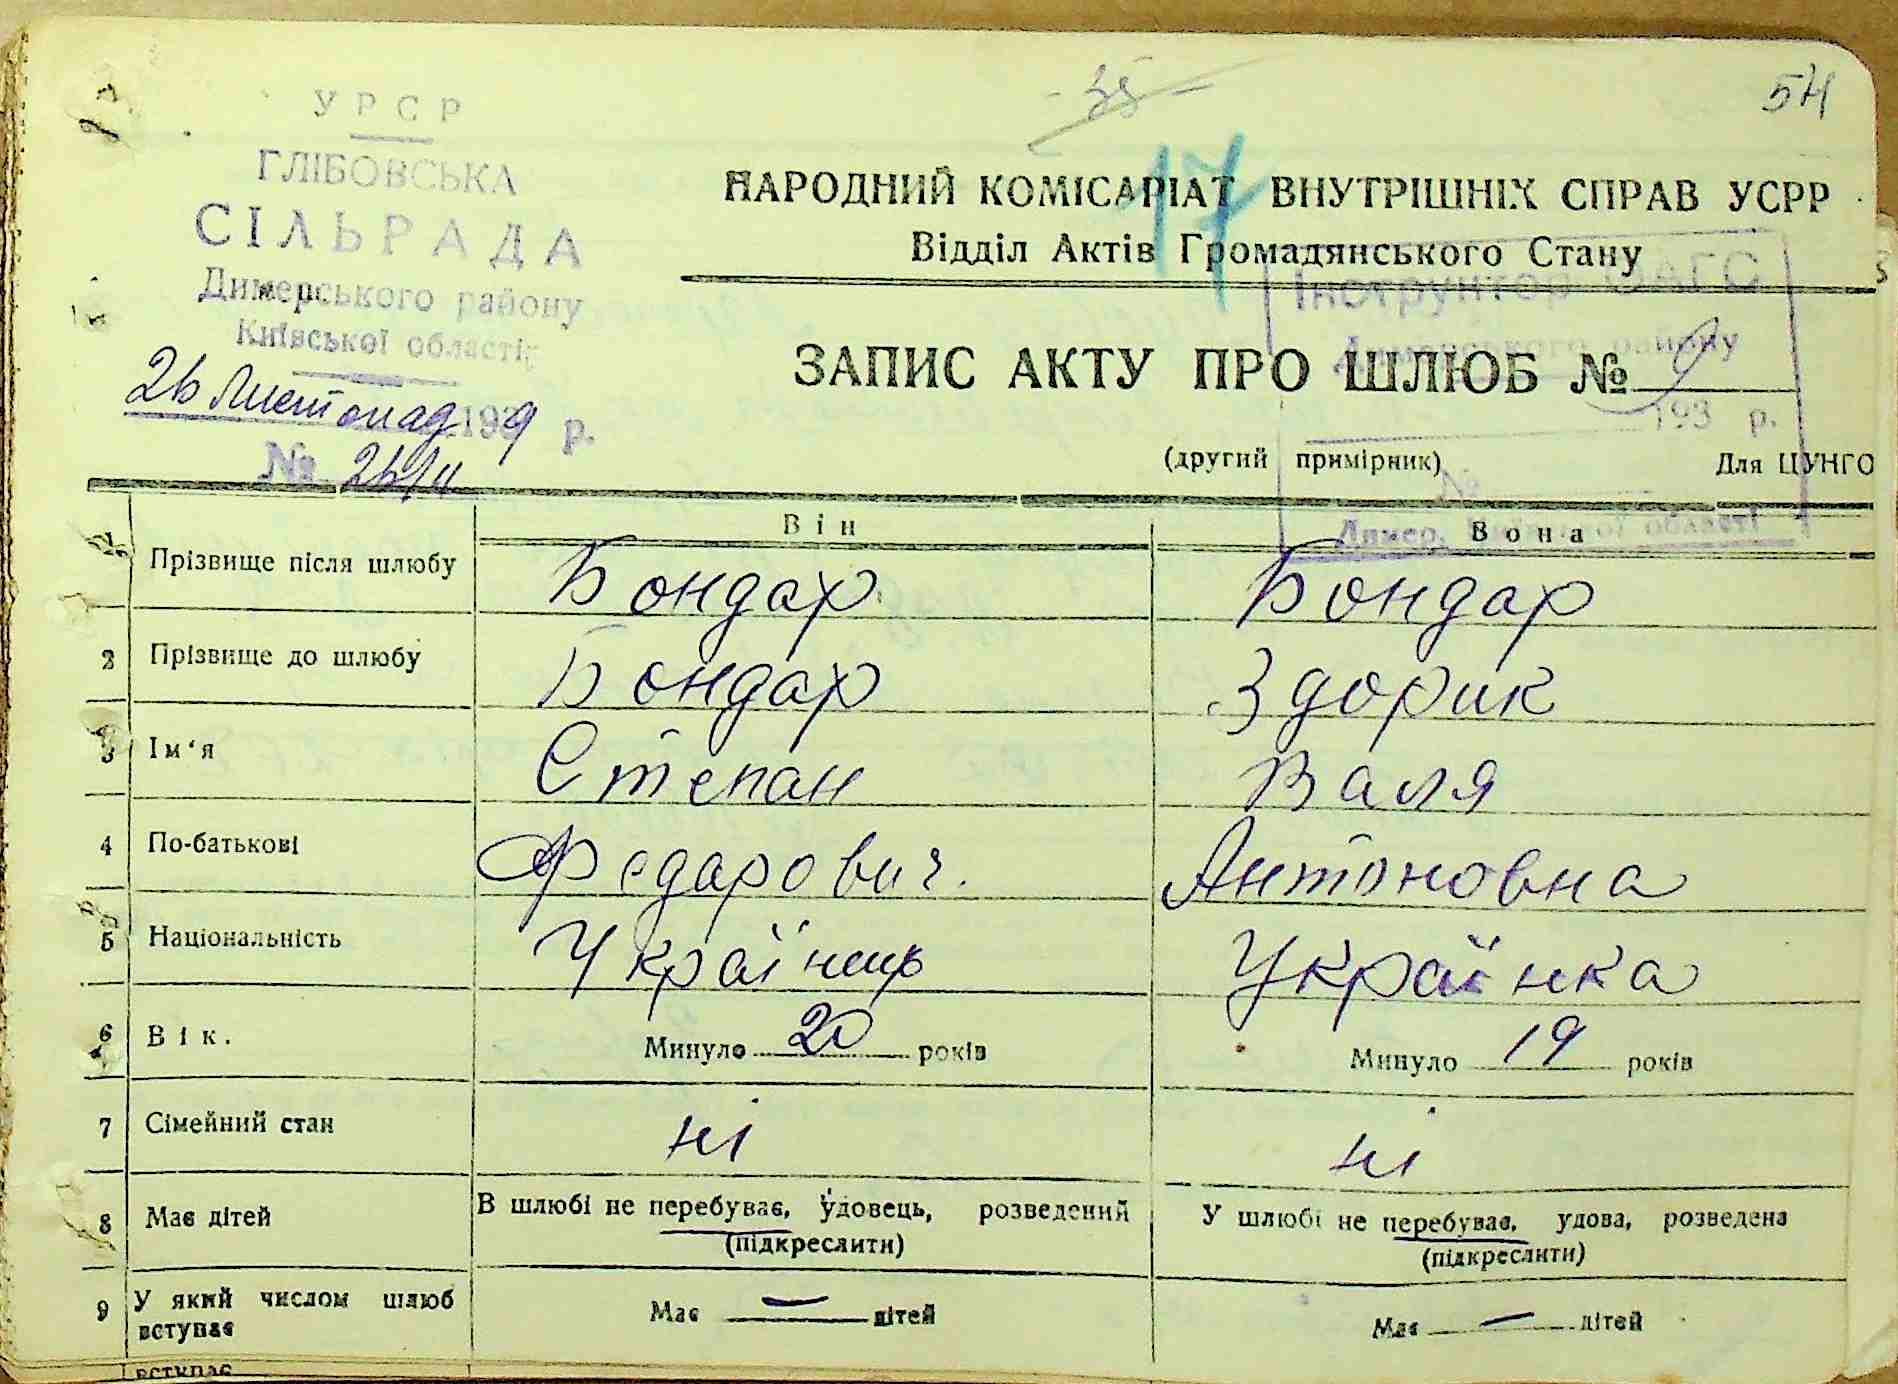 35
54
17
УРСР
ГЛІБОВСЬКА
СІЛЬРАДА
Димерського району
Київської області
26 Листопад 1939 р.
№ 26/11
НАРОДНИЙ КОМІСАРІАТ ВНУТРІШНІХ СПРАВ УСРР
Відділ Актів Громадянського Стану
Інструктор ОАГС
Димерського району
ЗАПИС АКТУ ПРО ШЛЮБ № 9
193 р.
(другий примірник) Для ЦУНГО
№
Димер, Київської області
Він Вона
1 Прізвище після шлюбу Бондар Бондар
2 Прізвище до шлюбу Бондар Здорик
3 Ім'я Степан Валя
4 По-батькові Федарович. Антоновна
5 Національність Українець Українка
6 Вік. Минуло 20 років Минуло 19 років
7 Сімейний стан ні ні
8 Має дітей В шлюбі не перебуває, удовець, розведений У шлюбі не перебуває, удова, розведена
(підкреслити) (підкреслити)
9 У який числом шлюб Має — дітей Має — дітей
вступає
вступає